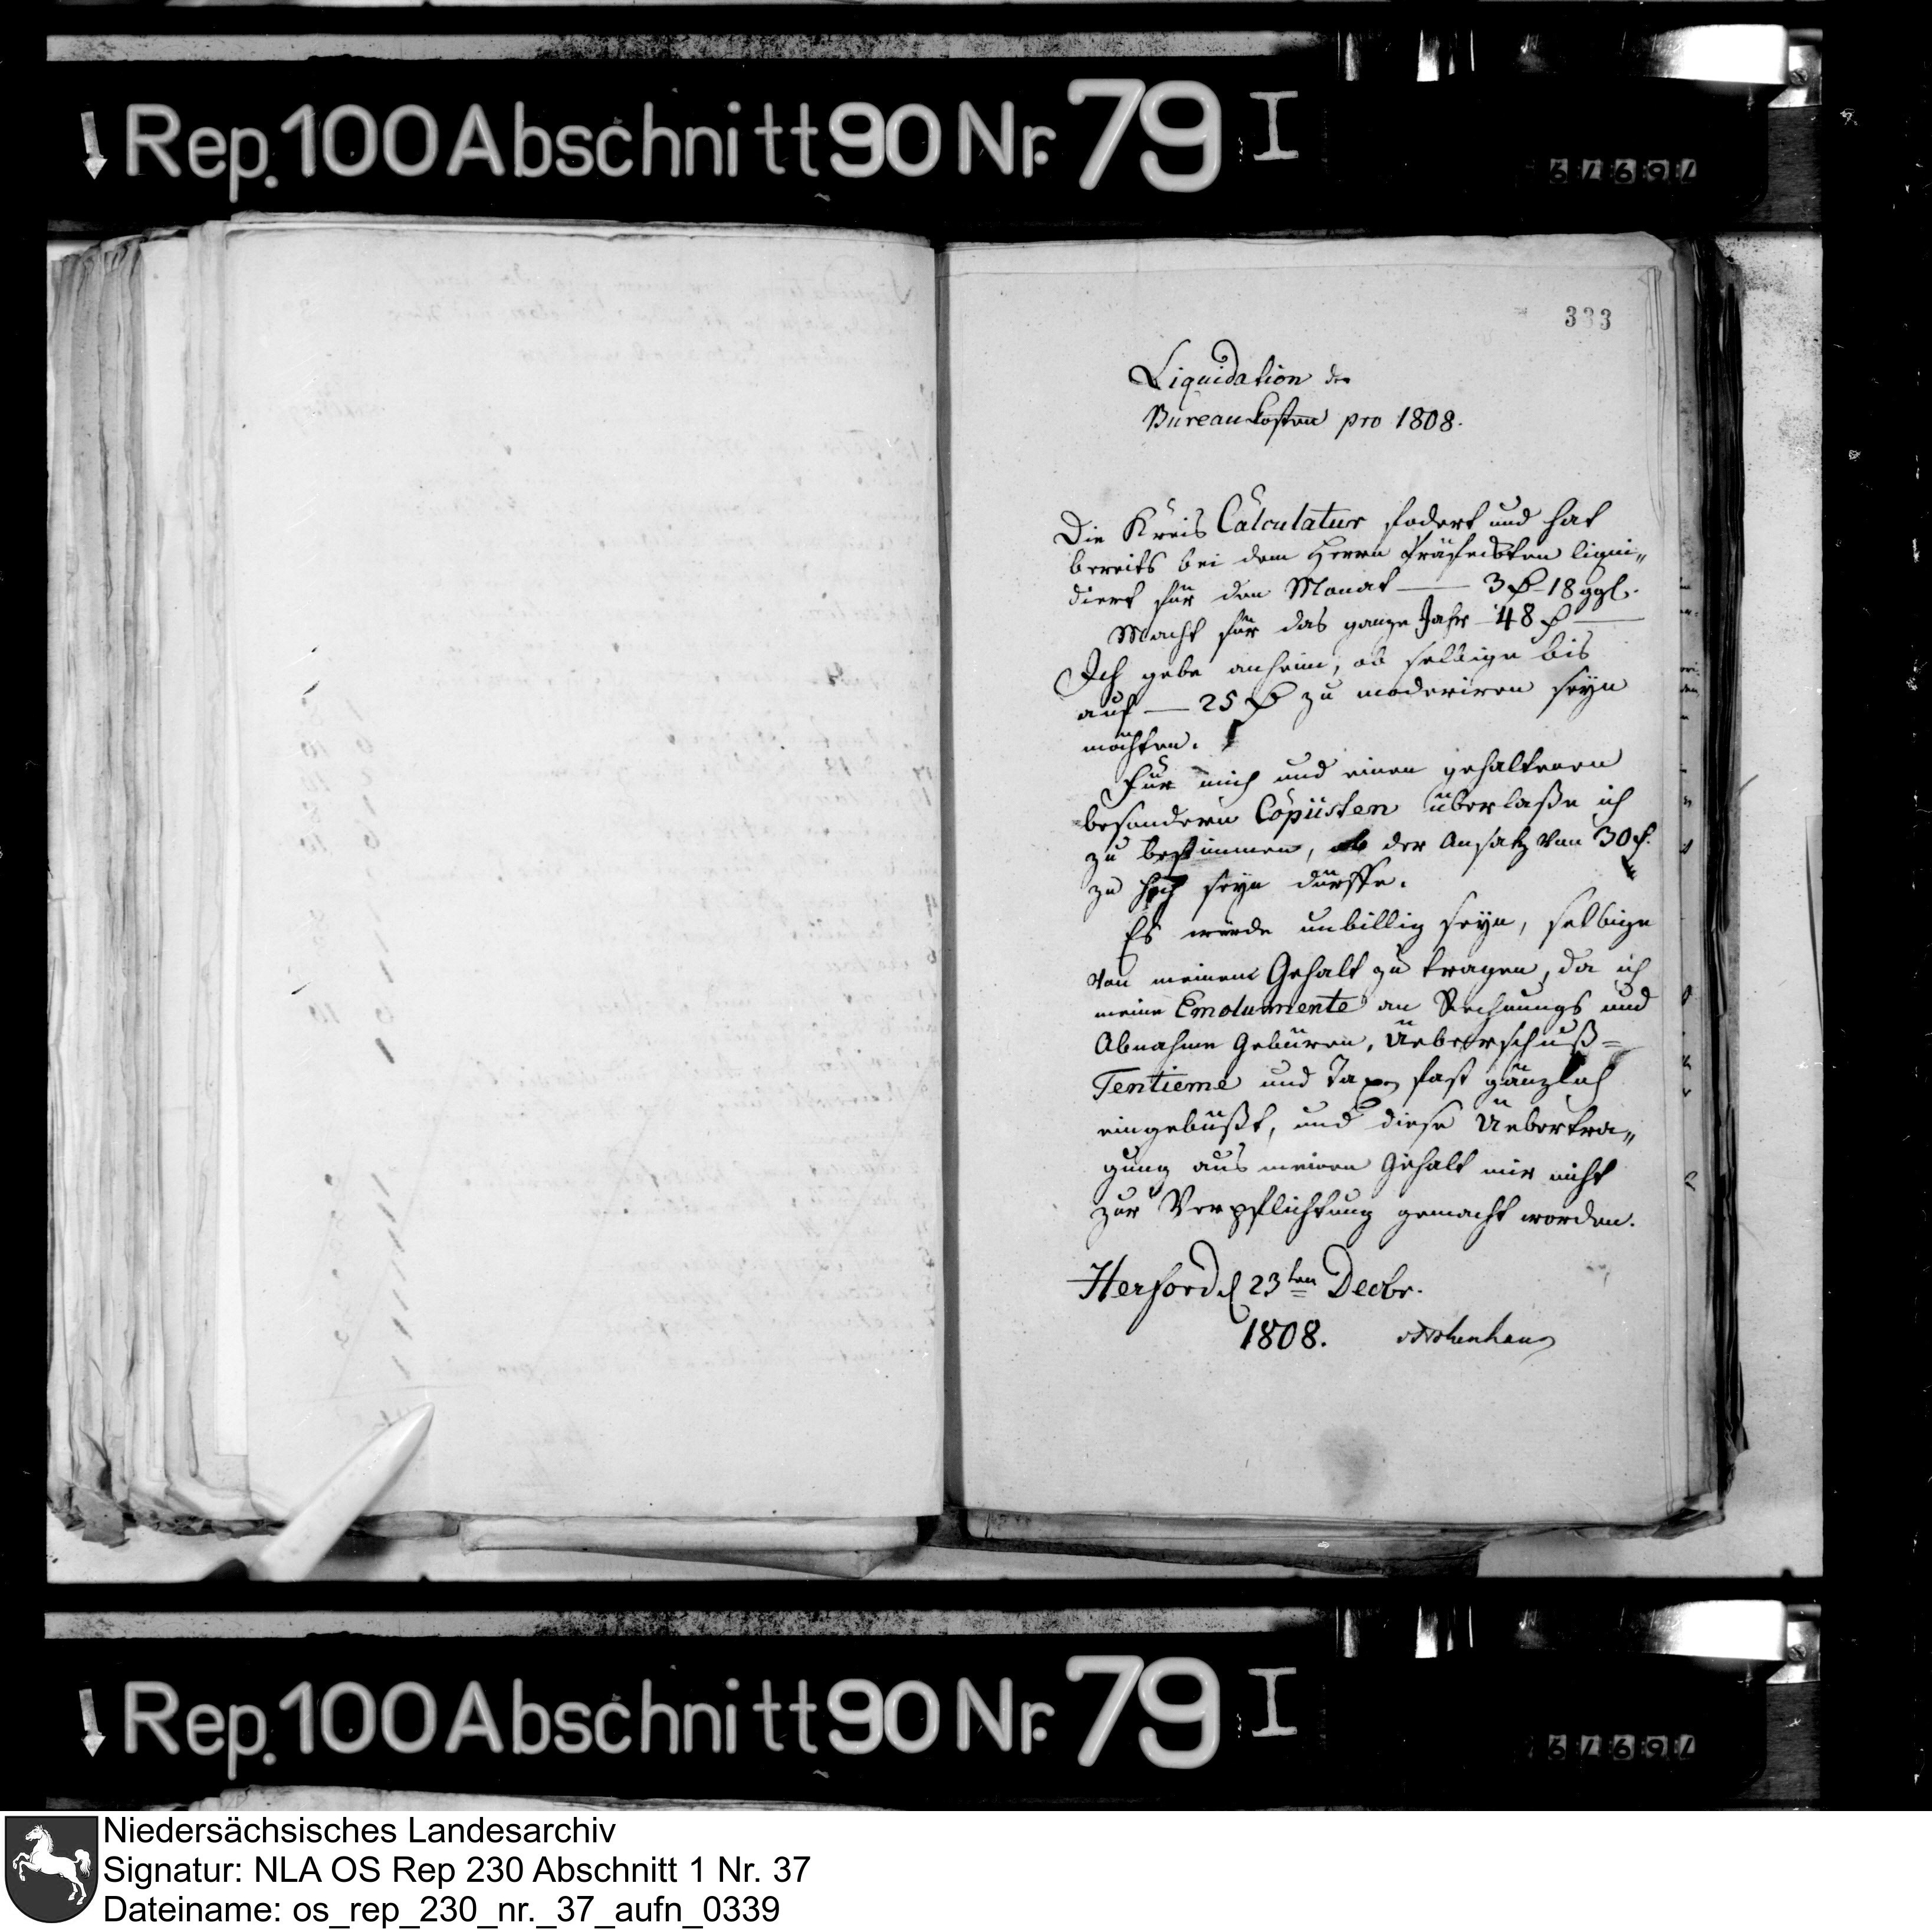 Rep. 100 Abschnitt 90 Nr. 79 I
333
Liquidation der
Bureaukosten pro 1808.
Die Kreis Calculatur fodert und hat
bereits bei dem Herrn Präfeckten liqui„
diert für den Monat — 3 rl 18 ggl.
Macht für das ganze Jahr 48 rl —
Ich gebe anheim, ob selbige bis
auf — 25 rl zu moderiren seyn
möchten.
Für mich und einen gehaltenen
besondern Copiisten überlaße ich
zu bestimmen, ob der Ansatz von 30 rl.
zu hoch seyn dürffte.
Es würde unbillig seyn, selbige
von meinem Gehalt zu tragen, da ich
meine Emolumente an Rechnungs und
Abnahme Gebüren, Ueberschuß=
Tentieme und Taxen fast gänzlich
eingebüßt, und diese Uebertra„
gung aus meinen Gehalt mir nicht
zur Verpflichtung gemacht worden.
Herford d 23ten Decbr.
1808.
Rep. 100 Abschnitt 90 Nr. 79 I
Niedersächsisches Landesarchiv
Signatur: NLA OS Rep 230 Abschnitt 1 Nr. 37
Dateiname: os_rep_230_nr._37_aufn_0339